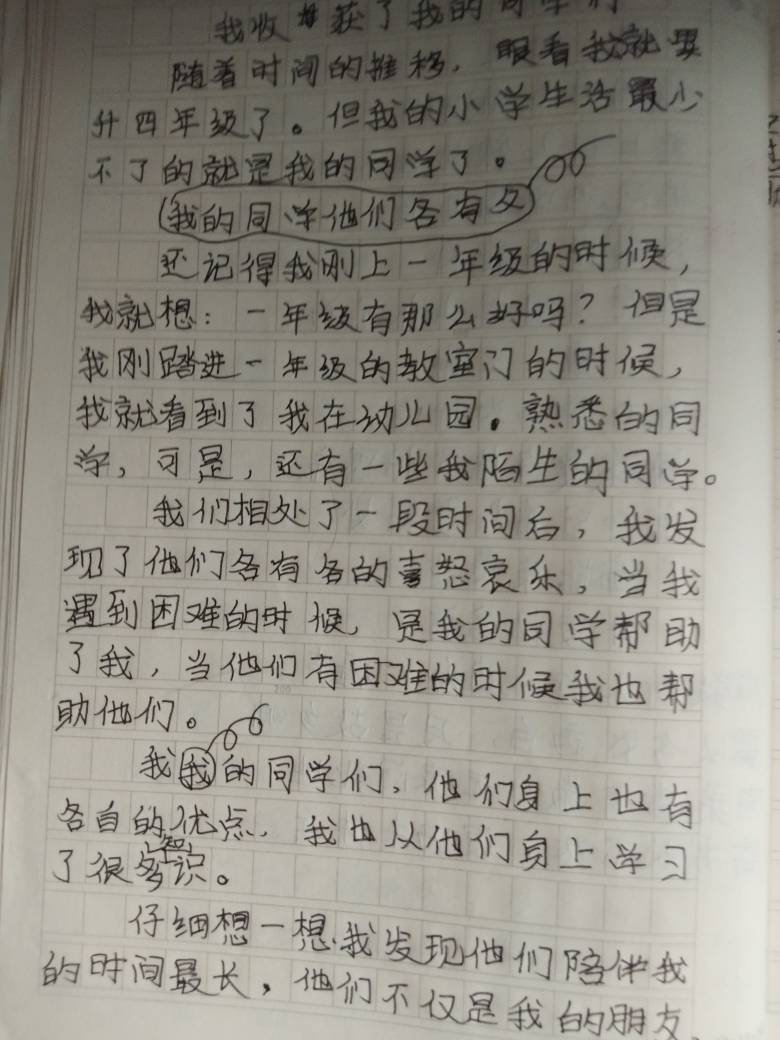 我收获了我的同学们
随着时间的推移，眼看我就要
升四年级了。但我的小学生活最少
不了的就是我的同学了。
(我的同学他们各有又
还记得我刚上一年级的时候，
我就想：一年级有那么好吗？但是
我刚踏进一年级的教室门的时候，
我就看到了我在幼儿园。熟悉的同
学，可是，还有一些我陌生的同学。
我们相处了一段时间后，我发
现了他们各有各的喜怒哀乐，当我
遇到困难的时候，是我的同学帮助
了我，当他们有困难的时候我也帮
助他们。
我我的同学们，他们身上也有
各自的优点，我也从他们身上学习
了很多知识。
仔细想一想，我发现他们陪伴我
的时间最长，他们不仅是我的朋友，